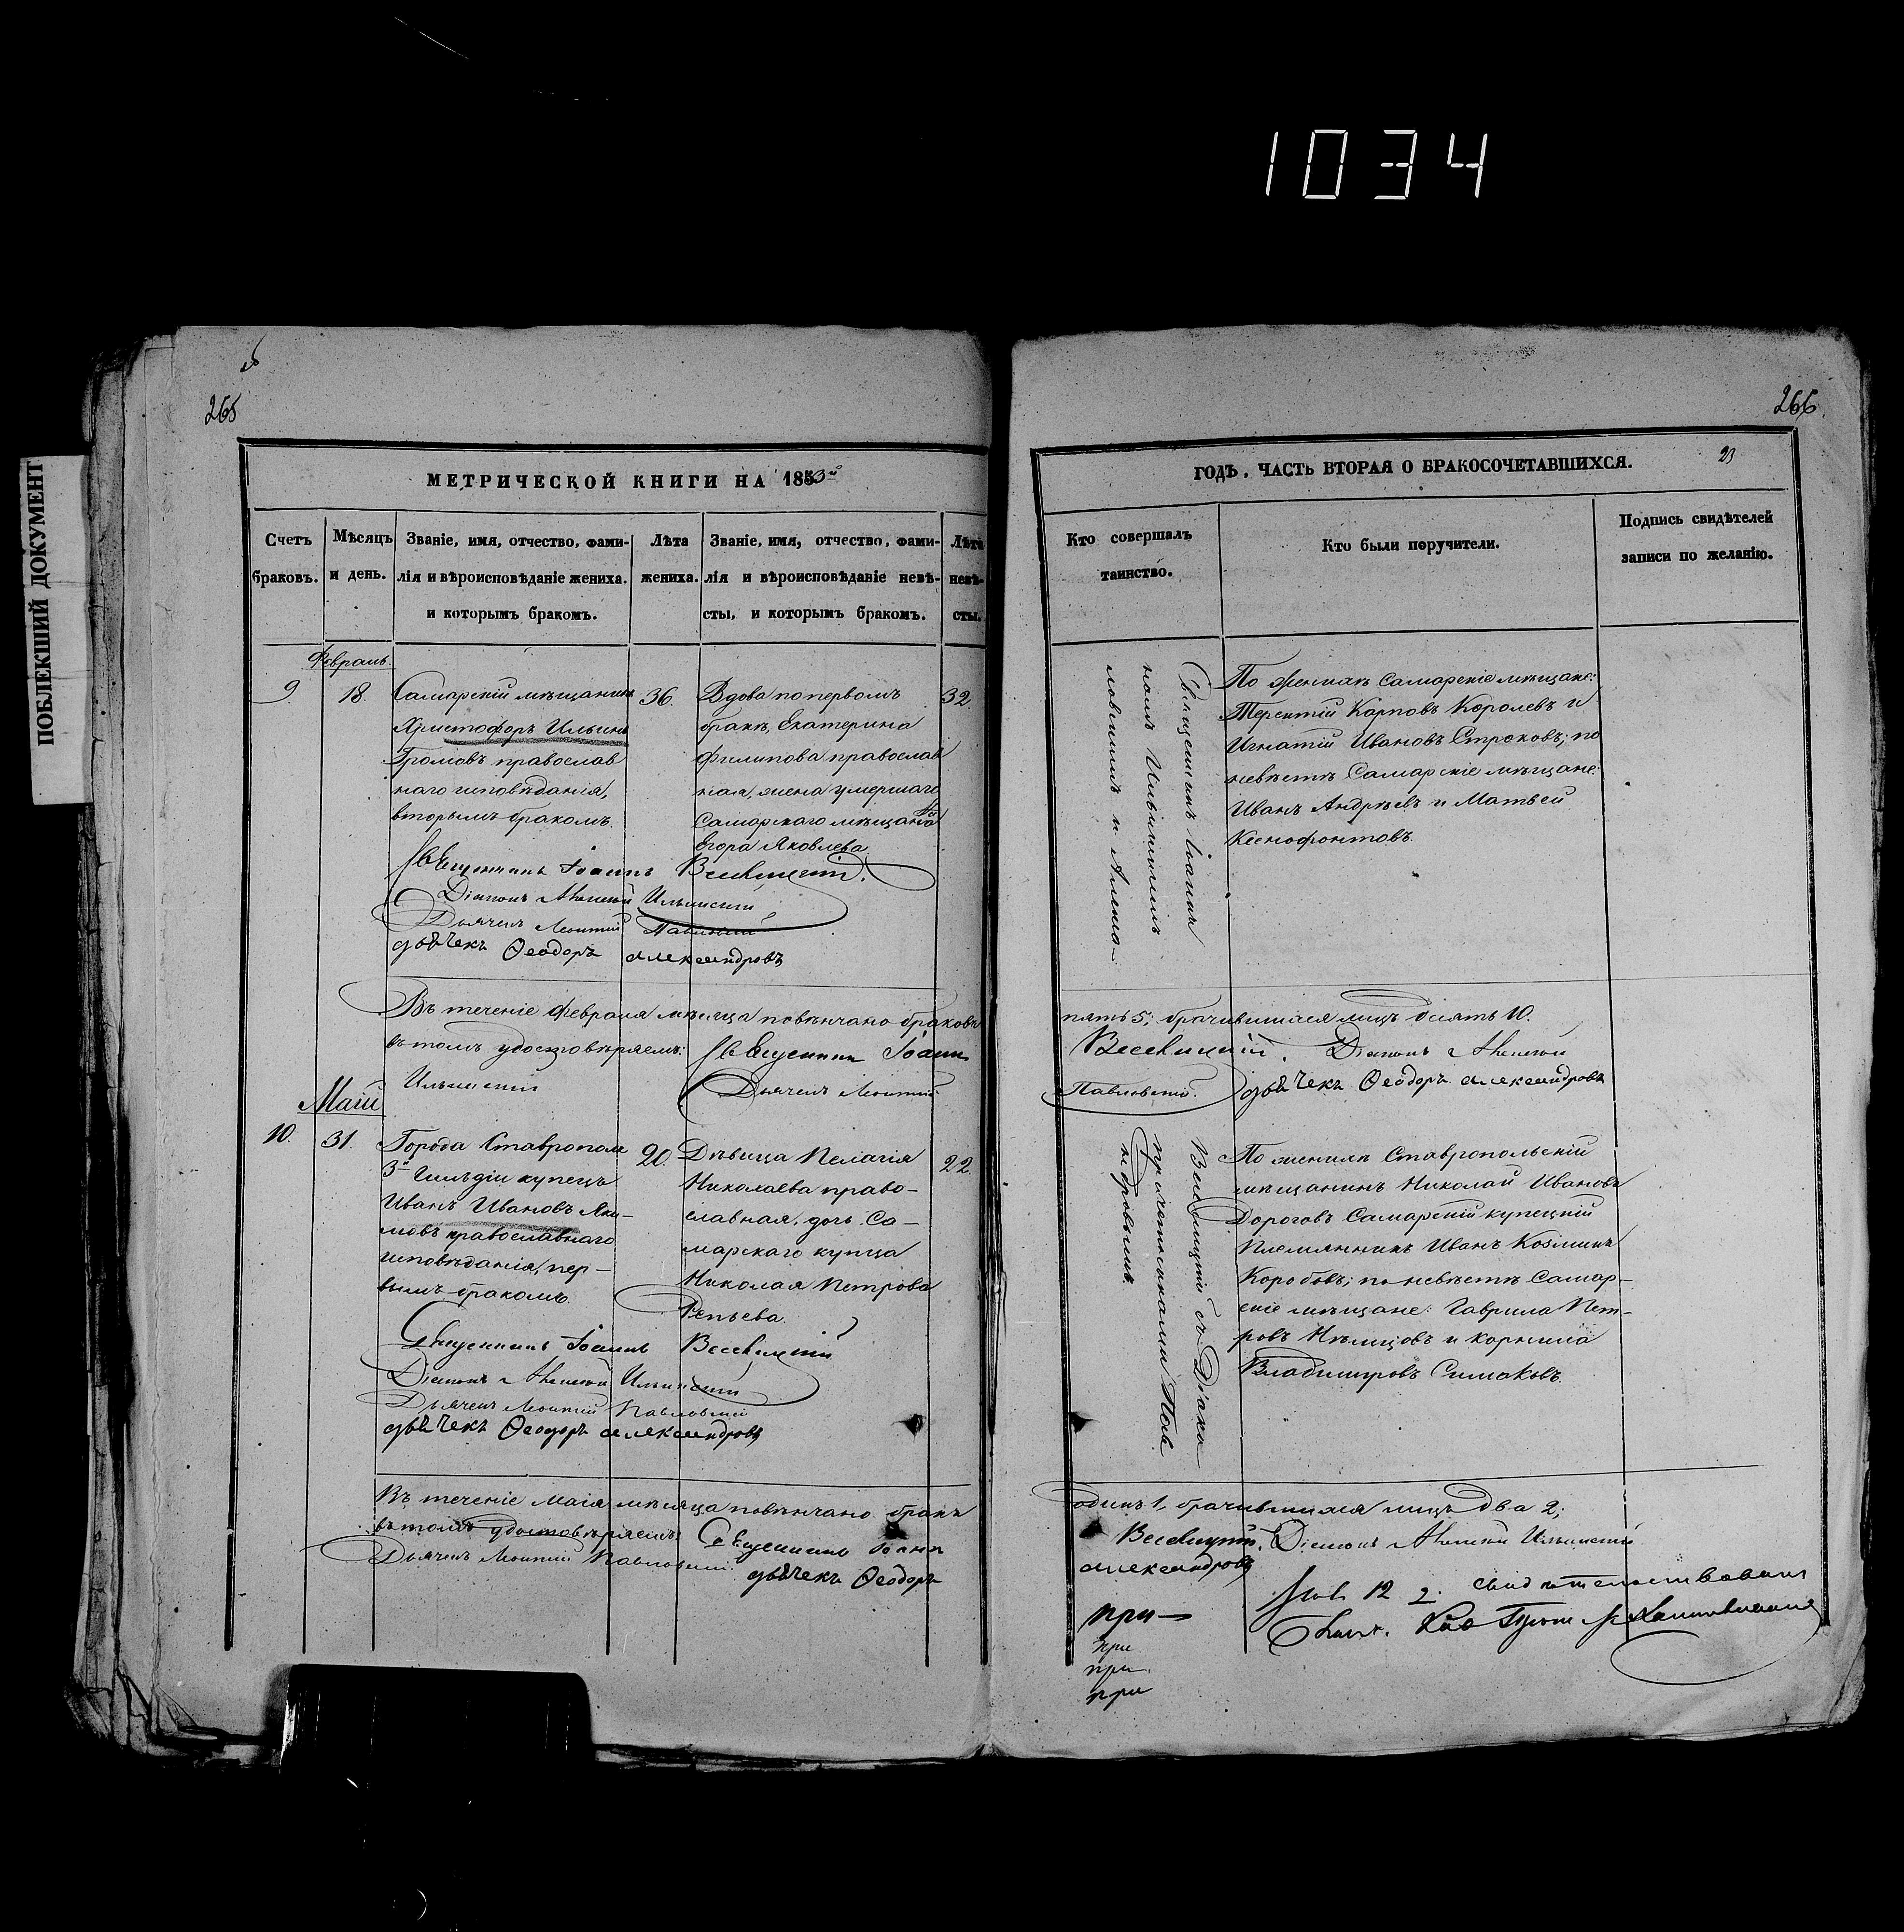 1034
ПОБЛЕКШИЙ ДОКУМЕНТ
265
МЕТРИЧЕСКОЙ КНИГИ НА 1853й
Счетъ браковъ.
Мѣсяцъ и день.
Званіе, имя, отчество, фами-
лія и вѣроисповѣданіе жениха.
и которымъ бракомъ.
Лѣта жениха.
Званіе, имя, отчество, фами-
лія и вѣроисповѣданіе невѣ-
сты, и которымъ бракомъ.
Лѣта невѣ-
сты.
Февраль
9.
18.
Самарскій мѣщанинъ
Христофоръ Ильинъ
Громовъ православ
наго исповѣданія,
вторымъ бракомъ.
36.
Вдова по первомъ
бракѣ, Екатерина
Филипова православ
ная, жена умершаго
Самарскаго мѣщанина
Егора Яковлева
32.
Священникъ Іоаннъ
Діаконъ Алексей Ильинскій
Дьячекъ Леонтій Павловскій
дьячекъ Ѳеодоръ Александровъ
Въ теченіе Февраля мѣсяца повѣнчано браковъ
въ томъ удостовѣряемъ: Священникъ Іоаннъ
Ильинскій Дьячекъ Леонтій
Маій
10.
31.
Города Ставрополя
3й Гильдіи купецъ
Иванъ Ивановъ Яки-
мовъ православнаго
исповѣданія, пер-
вымъ бракомъ.
20.
Дѣвица Пелагія
Николаева право-
славная, дочь Са-
марскаго купца
Николая Петрова
Репьева.
22.
Священникъ Іоаннъ
Діаконъ Алексей Ильинскій
Дьячекъ Леонтій Павловскій
дьячекъ Ѳеодоръ Александровъ
Въ теченіе Маія мѣсяца повѣнчано бракъ
въ томъ удостовѣряемъ: Священникъ Іоаннъ
Дьячекъ Леонтій Павловскій дьячекъ Ѳеодоръ
266.
23
ГОДЪ, ЧАСТЬ ВТОРАЯ О БРАКОСОЧЕТАВШИХСЯ.
Кто совершалъ
таинство.
Кто были поручители.
Подпись свидѣтелей
записи по желанію.
Священникъ Іоаннъ
По женихѣ Самарскіе мѣщане:
Терентій Карповъ Королевъ и
Игнатій Ивановъ Строковъ; по
невѣстѣ Самарскіе мѣщане:
Иванъ Андрѣевъ и Матвей
Ксенофонтовъ.
пять 5; брачившихся лицъ десять 10.
Діаконъ Алексей
Павловскій. дьячекъ Ѳеодоръ Александровъ
По женихѣ Ставропольскій
мѣщанинъ Николай Ивановъ
Дороговъ Самарскій купецкій
племянникъ Иванъ Козминъ
Коробовъ; по невѣстѣ Самар-
скіе мѣщане: Гаврила Пет-
ровъ Нѣмцовъ и Корнила
Владимировъ Симаковъ.
одинъ 1, брачившихся лицъ два 2;
Діаконъ Алексей Ильинскій
Александровъ
свидѣтельствовалъ
при
при
при
при